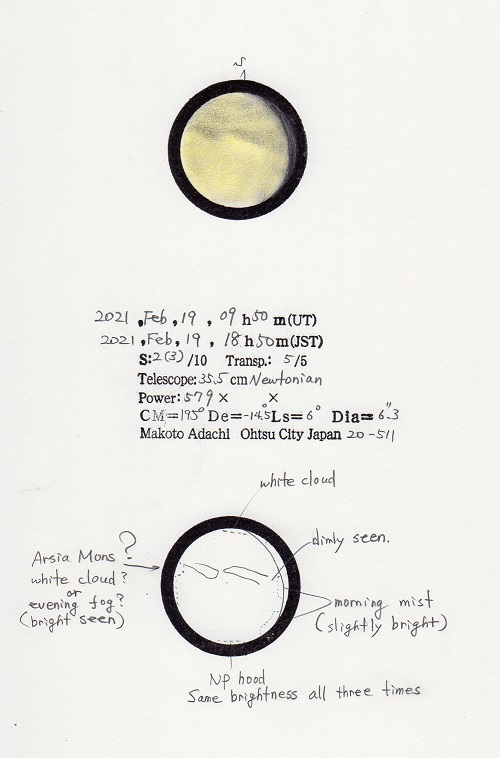 S
2021 ,Feb, 19 , 09 h 50 m(UT)
2021 ,Feb, 19 , 18 h 50 m(JST)
S:2(3)/10 Transp.: 5/5
Telescope: 35.5 cm Newtonian
Power: 579 × ×
CM=195° De=-14.5° Ls=6° Dia=6".3
Makoto Adachi Ohtsu City Japan 20-511
white cloud
dimly seen.
Arsia Mons ?
white cloud?
or
evening fog?
(bright seen)
morning mist
(slightly bright)
NP hood
Same brightness all three times